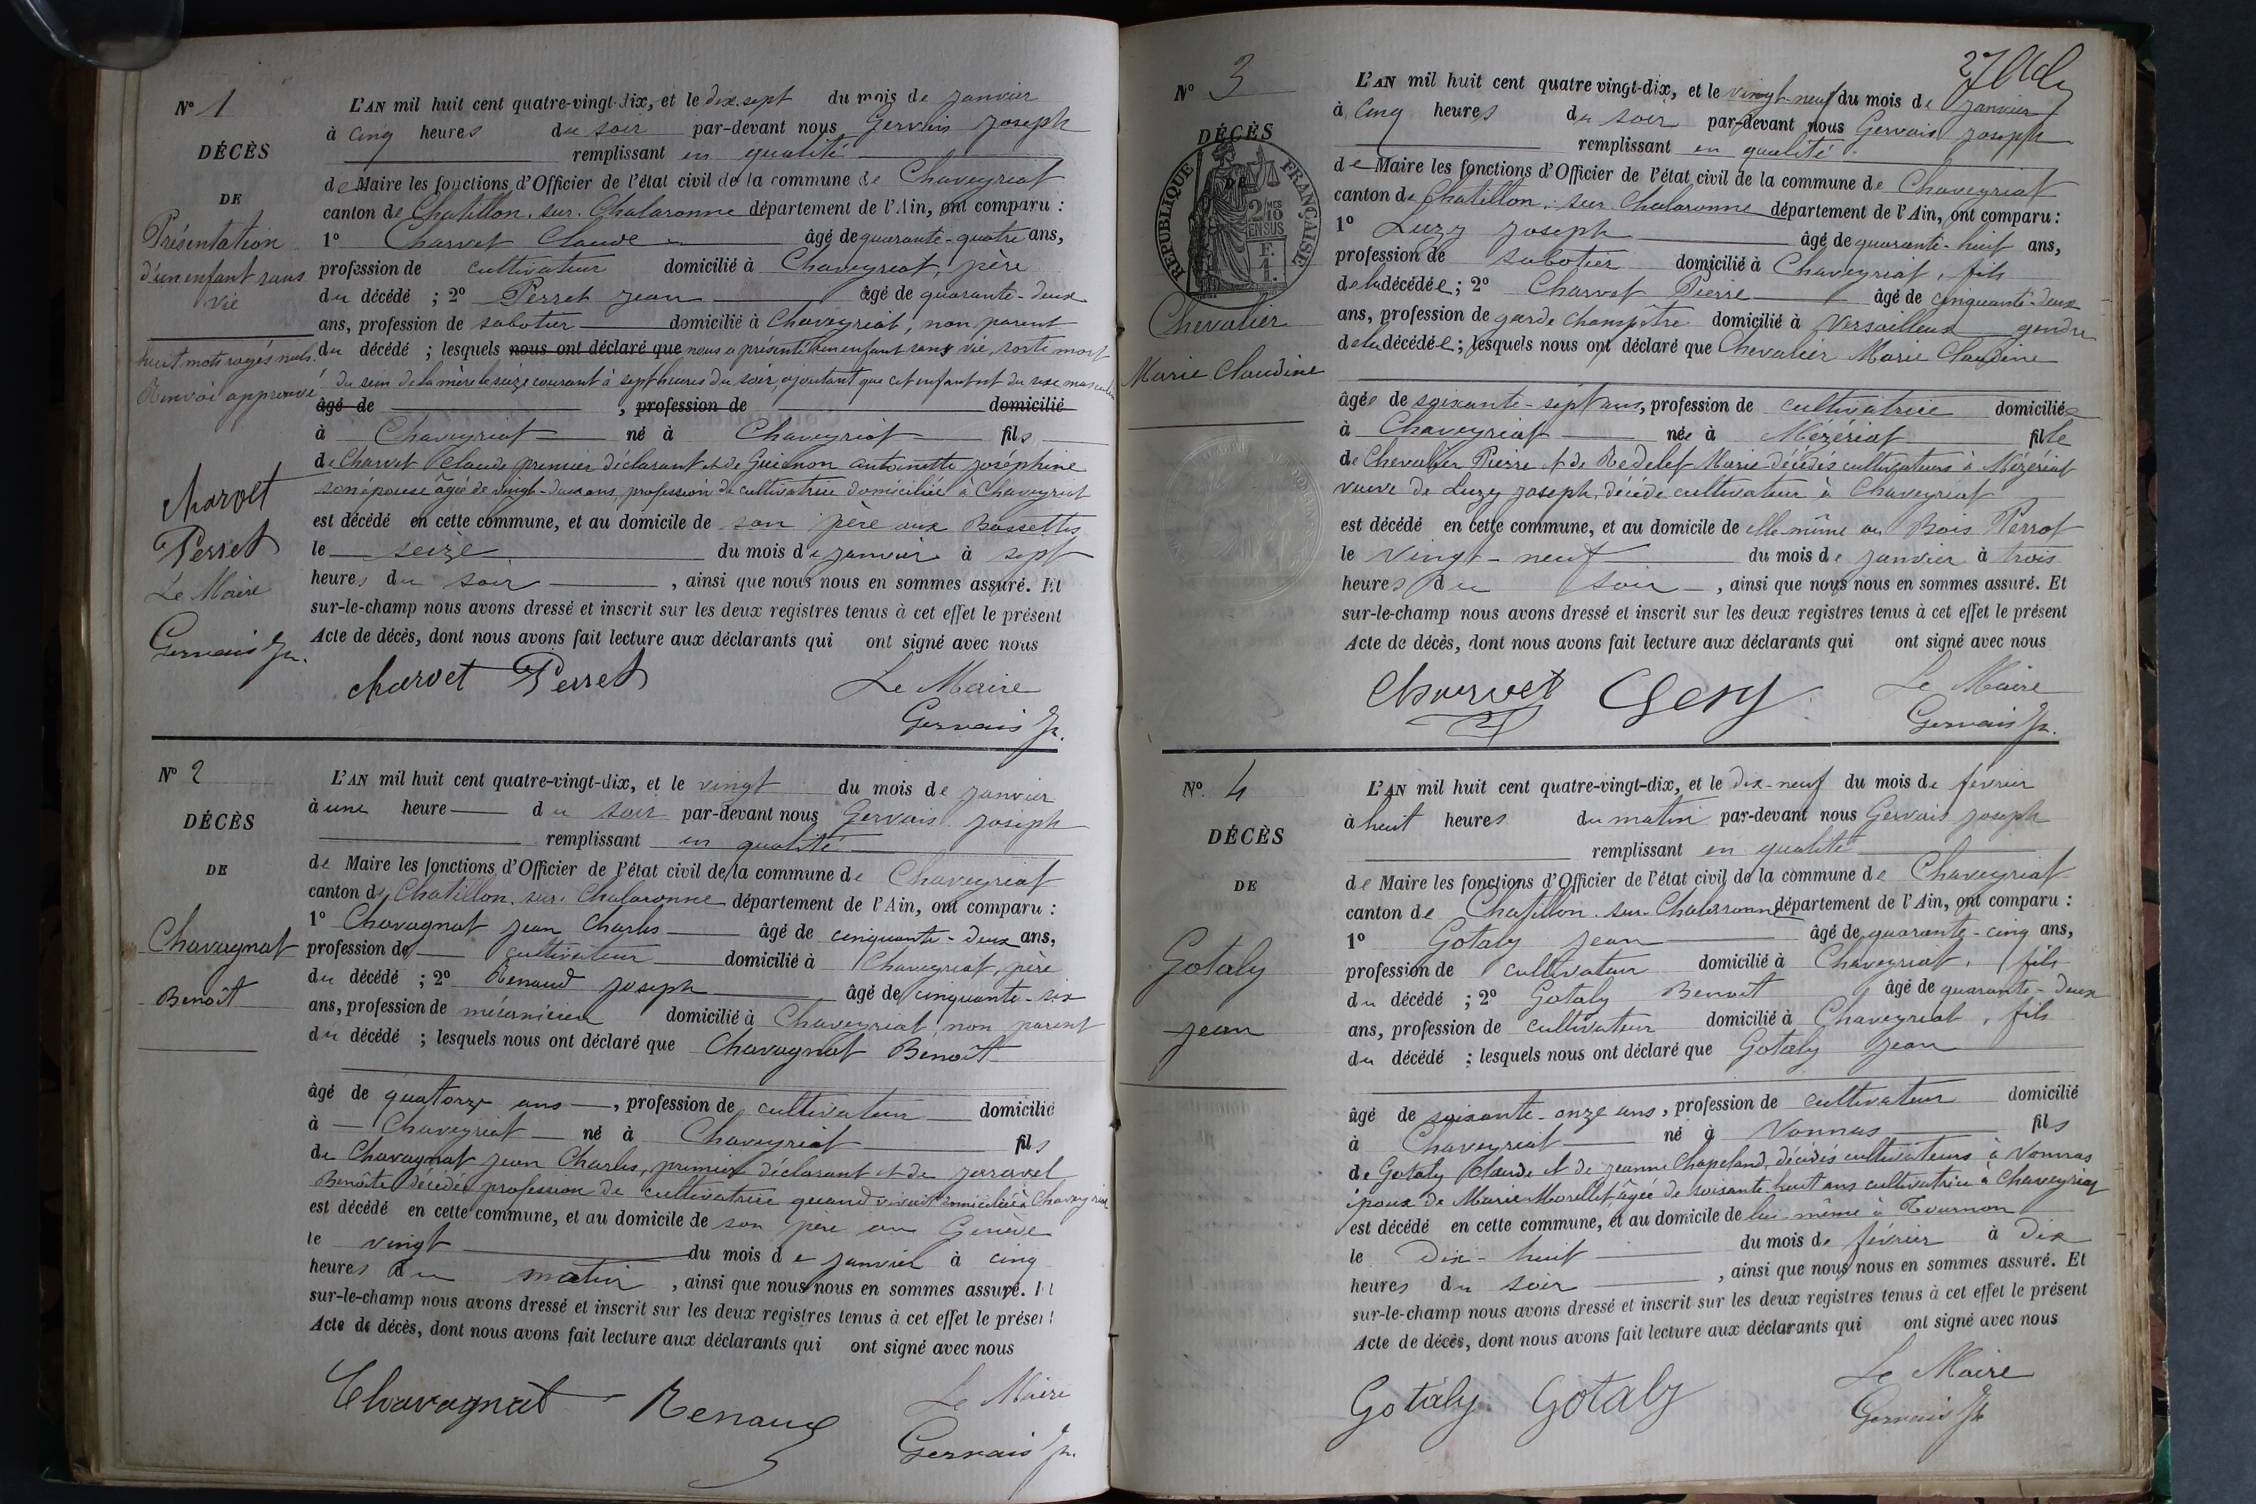 N° 1
DÉCÈS
DE
Présentation
d'un enfant sans
vie
huit mots rayés nuls.
Renvoi approuvé
Charvet
Perret
Le Maire
Gervais Jh.
L'AN mil huit cent quatre-vingt-dix, et le dix-sept du mois de janvier
à cinq heures du soir par-devant nous Gervais Joseph
remplissant en qualité
de Maire les fonctions d'Officier de l'état civil de la commune de Chaveyriat
canton de Chatillon-sur-Chalaronne département de l'Ain, ont comparu :
1° Charvet Claude âgé de quarante-quatre ans,
profession de cultivateur domicilié à Chaveyriat, père
du décédé ; 2° Perret Jean âgé de quarante-deux
ans, profession de sabotier domicilié à Chaveyriat, non parent
du décédé ; lesquels nous ont déclaré que nous a présenté un enfant sans vie, sorti mort
du sein de la mère le seize courant à sept heures du soir, ajoutant que cet enfant est du sexe masculin
âgé de , profession de domicilié
à Chaveyriat né à Chaveyriat fils
de Charvet Claude premier déclarant et de Guignon Antoinette Joséphine
son épouse âgée de vingt-deux ans, profession de cultivatrice domiciliée à Chaveyriat
est décédé en cette commune, et au domicile de son père aux Bassettes
le seize du mois de janvier à sept
heures du soir , ainsi que nous nous en sommes assuré. Et
sur-le-champ nous avons dressé et inscrit sur les deux registres tenus à cet effet le présent
Acte de décès, dont nous avons fait lecture aux déclarants qui ont signé avec nous
Charvet Perret Le Maire
Gervais Jh.
N° 2
DÉCÈS
DE
Chavagnat
Benoît
L'AN mil huit cent quatre-vingt-dix, et le vingt du mois de janvier
à une heure du soir par-devant nous Gervais Joseph
remplissant en qualité
de Maire les fonctions d'Officier de l'état civil de la commune de Chaveyriat
canton de Chatillon-sur-Chalaronne département de l'Ain, ont comparu :
1° Chavagnat Jean Charles âgé de cinquante-deux ans,
profession de cultivateur domicilié à Chaveyriat, père
du décédé ; 2° Renaud Joseph âgé de cinquante-six
ans, profession de mécanicien domicilié à Chaveyriat, non parent
du décédé ; lesquels nous ont déclaré que Chavagnat Benoît
âgé de quatorze ans, profession de cultivateur domicilié
à Chaveyriat né à Chaveyriat fils
de Chavagnat Jean Charles, premier déclarant et de Jarravel
Benoîte décédée profession de cultivatrice quand vivait domiciliée à Chaveyriat
est décédé en cette commune, et au domicile de son père au Genève
le vingt du mois de janvier à cinq
heures du matin , ainsi que nous nous en sommes assuré. Et
sur-le-champ nous avons dressé et inscrit sur les deux registres tenus à cet effet le présent
Acte de décès, dont nous avons fait lecture aux déclarants qui ont signé avec nous
Chavagnat Renaud Le Maire
Gervais Jh.
27
N° 3
DÉCÈS
DE
RÉPUBLIQUE FRANÇAISE
2/10 MES
EN SUS
F.
1.
Chevalier
Marie Claudine
L'AN mil huit cent quatre vingt-dix, et le vingt-neuf du mois de janvier
à cinq heures du soir par-devant nous Gervais Joseph
remplissant en qualité
de Maire les fonctions d'Officier de l'état civil de la commune de Chaveyriat
canton de Chatillon-sur-Chalaronne département de l'Ain, ont comparu :
1° Luzy Joseph âgé de quarante-huit ans,
profession de sabotier domicilié à Chaveyriat, fils
de la décédée ; 2° Charvet Pierre âgé de cinquante-deux
ans, profession de garde champêtre domicilié à Versailleux gendre
de la décédée ; lesquels nous ont déclaré que Chevalier Marie Claudine
âgée de soixante-sept ans, profession de cultivatrice domiciliée
à Chaveyriat née à Mézériat fille
de Chevalier Pierre et de Redelet Marie décédés cultivateurs à Mézériat
veuve de Luzy Joseph, décédé cultivateur à Chaveyriat
est décédé en cette commune, et au domicile de elle-même au Bois Perrot
le vingt-neuf du mois de janvier à trois
heures du soir , ainsi que nous nous en sommes assuré. Et
sur-le-champ nous avons dressé et inscrit sur les deux registres tenus à cet effet le présent
Acte de décès, dont nous avons fait lecture aux déclarants qui ont signé avec nous
Charvet Le Maire
Gervais Jh.
N° 4
DÉCÈS
DE
Gotaly
Jean
L'AN mil huit cent quatre-vingt-dix, et le dix-neuf du mois de février
à huit heures du matin par-devant nous Gervais Joseph
remplissant en qualité
de Maire les fonctions d'Officier de l'état civil de la commune de Chaveyriat
canton de Chatillon-sur-Chalaronne département de l'Ain, ont comparu :
1° Gotaly Jean âgé de quarante-cinq ans,
profession de cultivateur domicilié à Chaveyriat, fils
du décédé ; 2° Gotaly Benoit âgé de quarante-deux
ans, profession de cultivateur domicilié à Chaveyriat, fils
du décédé ; lesquels nous ont déclaré que Gotaly Jean
âgé de soixante-onze ans, profession de cultivateur domicilié
à Chaveyriat né à Vonnas fils
de Gotaly Claude et de Jeanne Chapeland, décédés cultivateurs à Vonnas
époux de Marie Morellet, âgée de soixante-huit ans cultivatrice à Chaveyriat
est décédé en cette commune, et au domicile de lui-même à Tournon
le dix-huit du mois de février à dix
heures du soir , ainsi que nous nous en sommes assuré. Et
sur-le-champ nous avons dressé et inscrit sur les deux registres tenus à cet effet le présent
Acte de décès, dont nous avons fait lecture aux déclarants qui ont signé avec nous
Gotaly Gotaly Le Maire
Gervais Jh